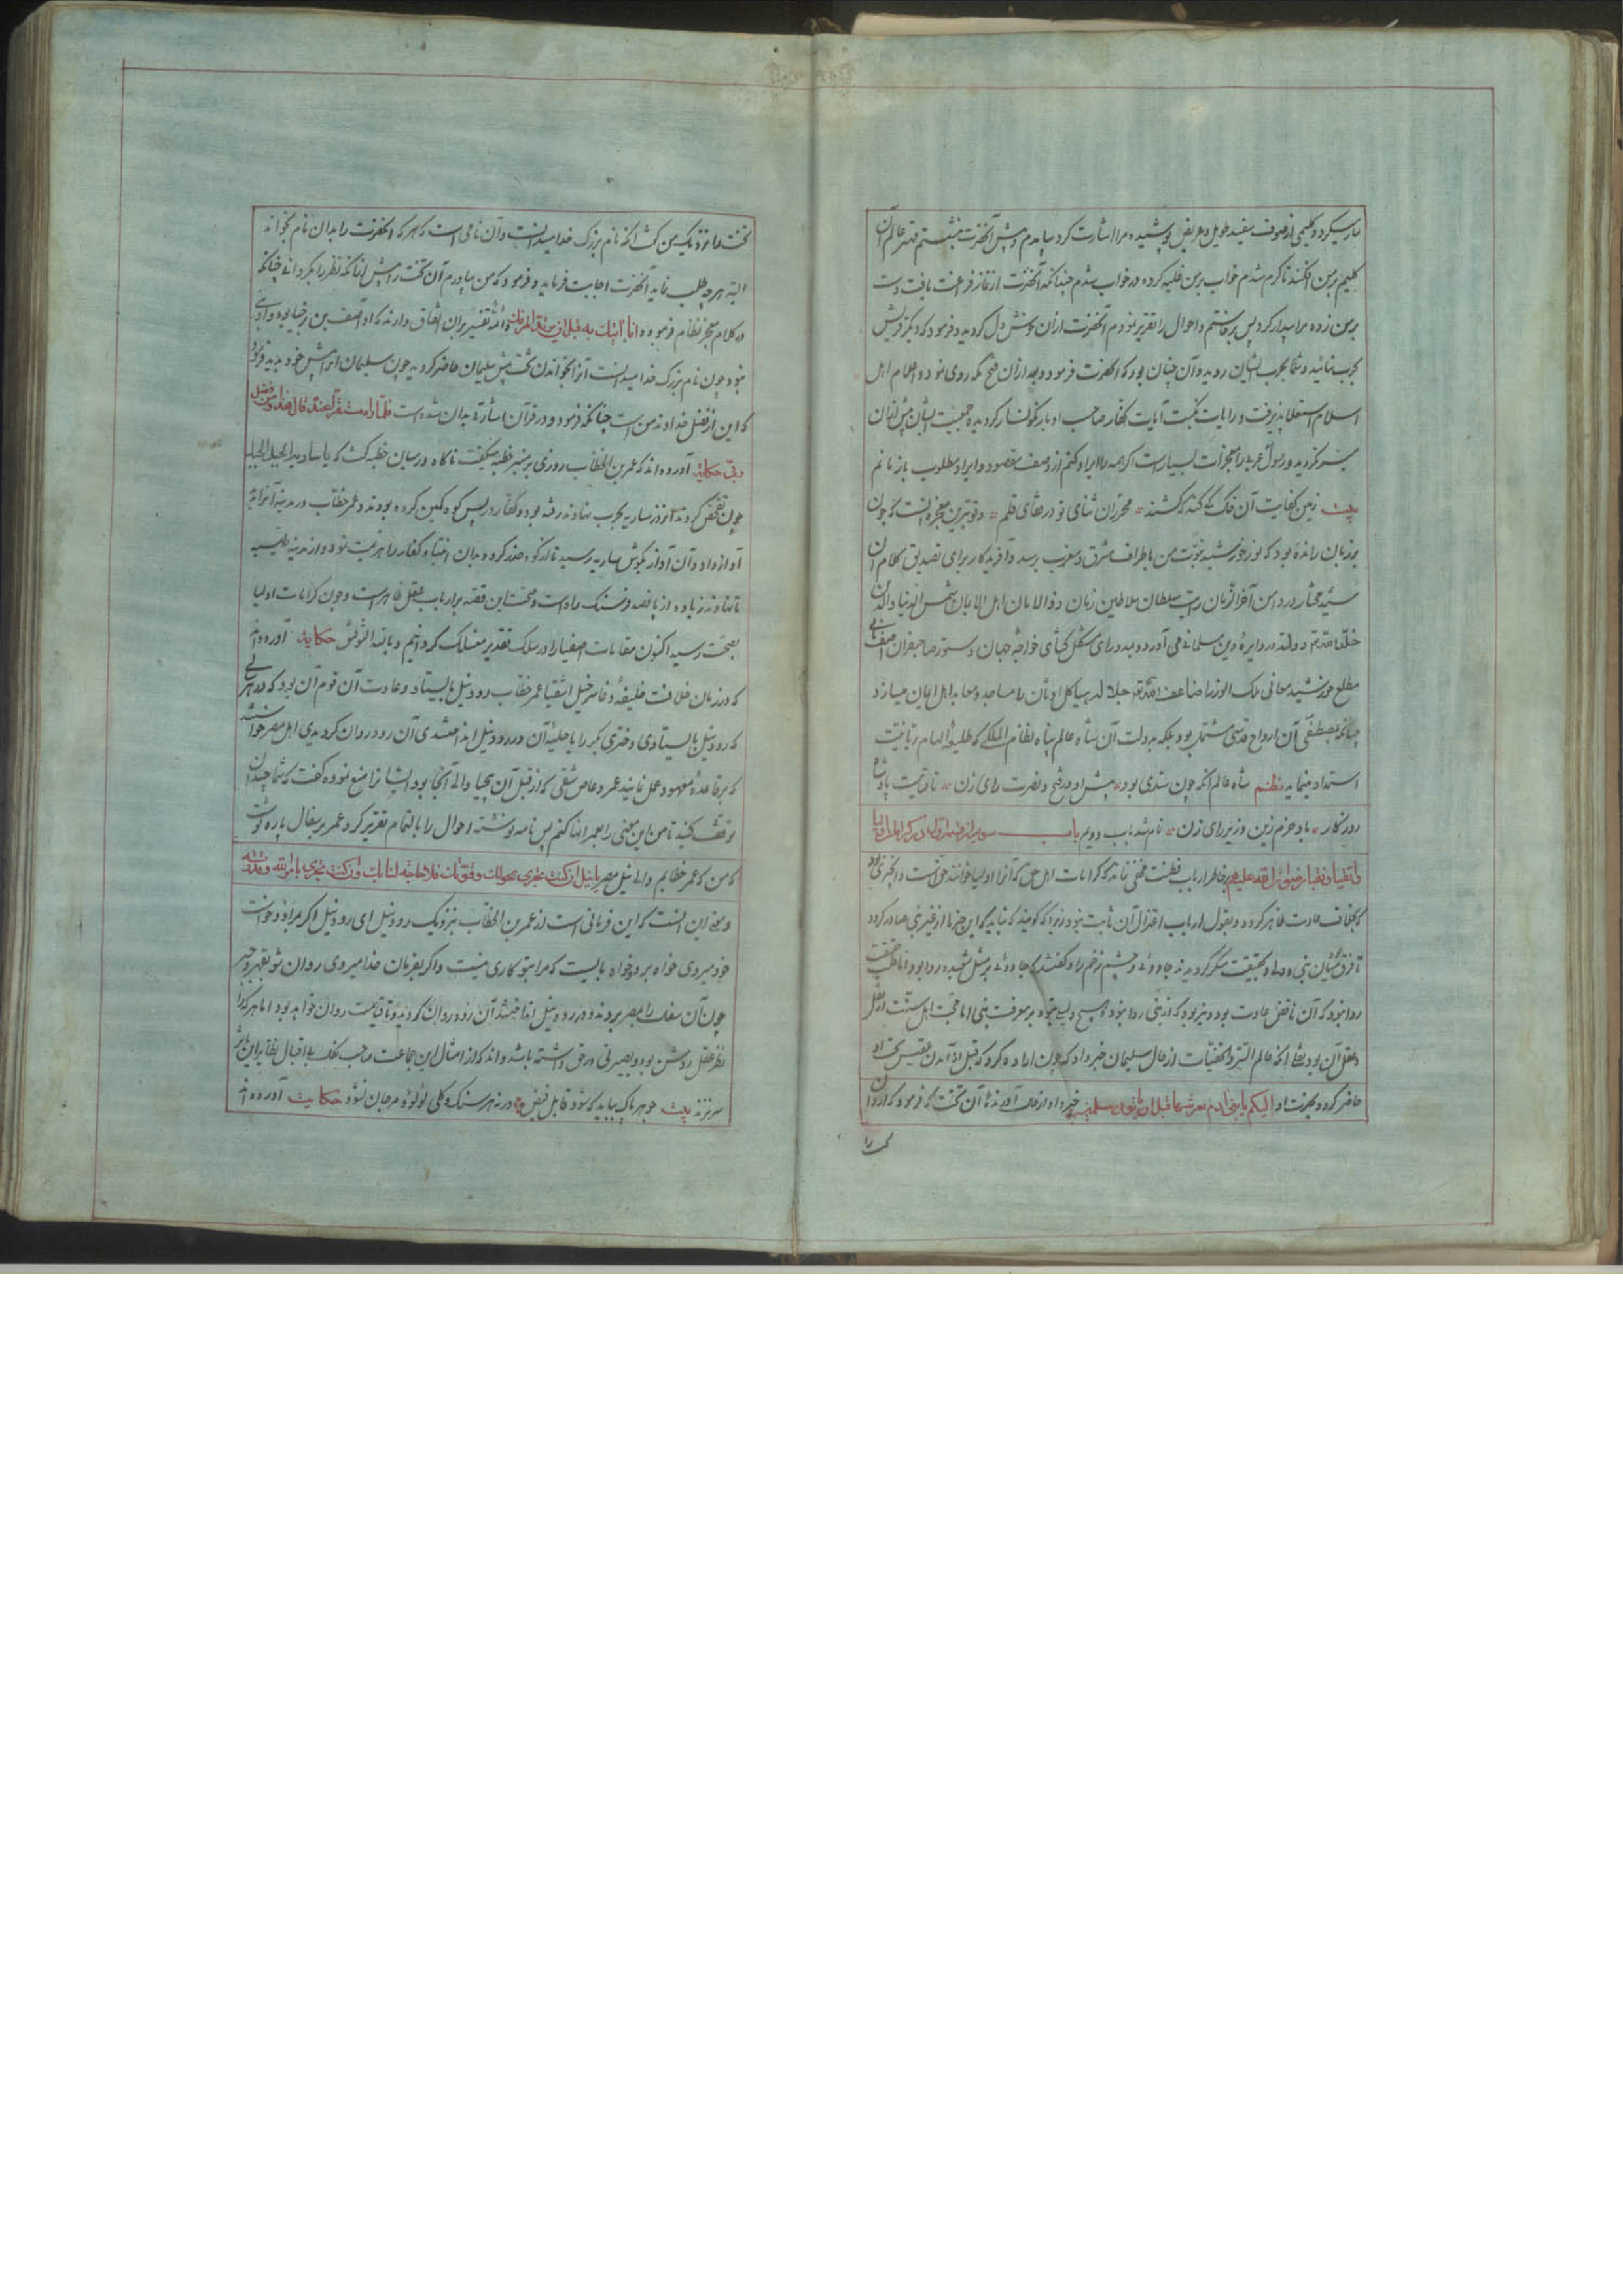 مارسیکرد و کلیمی از صوف سفید طویل و عریض پوشیده مرا اشارت کرد بیامدم و پیش آنحضرت بنشستم مهتر عالم آن
کلیم بر من افکند تا گرم شدم خواب بر من غلبه کرده در خواب شدم چندانکه آنحضرت از نماز فراغت یافت دست
بر من زده مرا بیدار کرد پس برخاستم و احوال را تقریر نمودم آنحضرت از آن خوش دل گردید و فرمود که دیگر قریش
بحرب نمائید و شما بحرب ایشان روید و آن چنان بود که آنحضرت فرمود و بعد از آن فتح مکه روی نمود و اعلام اهل
اسلام استعلا پذیرفت و رایات نکبت آیات کفار صاحب ادبار نگونسار گردیده جمعیت ایشان پیش از آن
میسر نگردید و رسول عربی را معجزات بسیارست اگر همه را ایراد کنم از وصف مقصود و ایراد مطلوب باز مانم
بیت زمین کفایت آن فلک نه کنند کشند محرران ثنای تو در بقای قلم و قویترین معجزه آنست که چون
بر زبان رانده بود که نور خورشید نبوت من باطراف مشرق و مغرب برسد و آفریدکار برای تصدیق کلام آن
سید مختار در دامن آخر الزمان رایت سلطان سلاطین زمان ذو الامان اهل الایمان شمس الدنیا والدین
خلد الله تع دولته در دایره دین مسلمانی می آورد و بدو رای مشکل کشای خواجه جهان دستور صاحبقران آصف ثانی
مطلع خورشید معانی ملک الوزرا ضاعف الله تع جلاله هیاکل اوثان را مساجد و معابد اهل ایمان میسازد
چنانکه مصطفی آن ارواح قدسی مشتمل بود بلکه بدولت آن شاه عالم پناه نظام الملکی که طلیعه الهام ربانیست
استمداد مینماید نظم شاه عالم آنکه چون سندی بود پیش او در فتح و نصرت رای زن تا قیامت پادشاه
روزگار باد خرم زین وزیر رای زن تمام شد باب دویم باب سویم از قسم اول در کرامات اولیا
و اتقیا و نقبا رضوان الله علیهم بر خاطر ارباب فطنت مخفی نماند که کرامات اهل حق که آنرا اولیا خوانند حق است و آنچه نبی بود
که بخلاف عادت ظاهر گردد و بقول ارباب اعتزال آن ثابت نبود زیرا که گویند که نباید که این چیزها از غیر نبی صادر گردد
تا فرق میان نبی و ولی و بحقیقت منکر گردیدند جادوئی و چشم زخم را و گفتند که جادوئی بر مثل شعبده روا بود و اما قلب حقیقت
روا نبود که آن ناقض عادت بود و نیز بود که از نبی روا نبود هیچ دلیلی نبود بر معرفت نبی اما حجت اهل سنت از نقل
و عقل آن بود یعنی آنکه عالم السر و الخفیات از حال سلیمان خبر داد که چون اراده کرد که قبل از آمدن بلقیس تخت او
حاضر گردد بحضرت او ایکم یاتینی بعرشها قبل ان یاتونی مسلمین خبر داد از حال آورنده آن تخت که فرمود که از زمان
تخت را
تخت را نزدیک من کشد آنکه نام بزرگ خدا میدانست و آن نامی است که هر که آنحضرت را بدان نام بخواند
البته هر چه طلب نماید آنحضرت اجابت فرماید و فرمود که من بیاورم آن تخت را پیش از آنکه نظر را بگردانی چنانکه
در کلام معجز نظام فرموده انا آتیک به قبل ان یرتد الیک طرفک و ائمه تفسیر بران اتفاق دارند که او آصف بن برخیا بود و او نبی
نبود چون نام بزرگ خدا میدانست آنرا بخواند آن تخت پیش سلیمان حاضر گردید چون سلیمان آنرا پیش خود بدید فرمود
که این از فضل خداوند من است چنانکه فرمود و در قرآن اشارت بدان شده است فلما راه مستقرا عنده قال هذا من فضل
ربی حکایة آورده اند که عمر بن الخطاب روزی بر منبر خطبه میگفت ناگاه در میان خطبه گفت که یا ساریه الجبل الجبل
چون تفحص کردند آنروز ساریه بحرب نهاوند رفته بود و کفار در پس کوه کمین کرده بودند و عمر خطاب در مدینه آنرا دیده
آواز داد و آن آواز بگوش ساریه رسید تا از کوه حذر کرد و بدان افتاد و کفار را هزیمت نمود و از مدینه طیبه
تا نهاوند زیاده از پانصد فرسنگ راه است و صحت این قصه بر ارباب عقل ظاهر است و چون کرامات اولیا
بصحت رسید اکنون مقامات اصفیا را در سلک تقریر منسلک گردانیم و بالله التوفیق حکایة آورده اند
که در زمان خلافت خلیفه عمر خطاب رود نیل بایستاد و عادت آن قوم آن بود که در هر سالی
که رود نیل بایستادی دختری بکر را با حلیه آن در رود نیل انداختندی آن رود روان گردیدی اهل مصر خواستند
که بر قاعده معهود عمل نمایند عمرو عاص که از قبل آن والی آنجا بود ایشانرا منع نموده گفت که شما چندان
توقف کنید تا من این معنی را بعمر انها کنم پس نامه نوشته احوال را بالتمام تقریر کرد عمر بر سفال پاره نوشت
که من که عمر خطابم و الی نیل مصر یا نیل ان کنت تجری بحولک و قوتک فلا حاجة لنا بک و ان کنت تجری بامر الله و قدرته
و معنی این آنست که این فرمانی است از عمر بن الخطاب بنزدیک رود نیل ای رود نیل اگر بمراد و خواست
خود میروی خواه برو خواه بایست که مرا بتو کاری نیست و اگر بفرمان خدا میروی روان شو بقهر و جبر
چون آن سفال را بمصر بردند و در رود نیل انداختند آن رود روان گردید و تا قیامت روان خواهد بود اما هر که را
نظر عقل روشن بود و بصیرتی در حق داشته باشد داند که از امثال این جماعت صاحب نکبت بی اقبال نظایر این ها
سر نزند بیت جوهر پاک بباید که شود قابل فیض ورنه هر سنگ و گلی لؤلؤ و مرجان نشود حکایت آورده اند